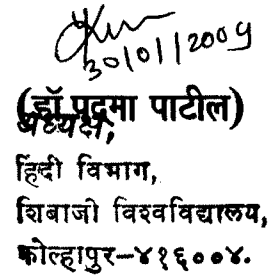 30/01/2009
(डॉ.पद्मा पाटील)
अध्यक्ष,
हिंदी विभाग,
शिवाजी विश्वविद्यालय,
कोल्हापुर-४१६००४.